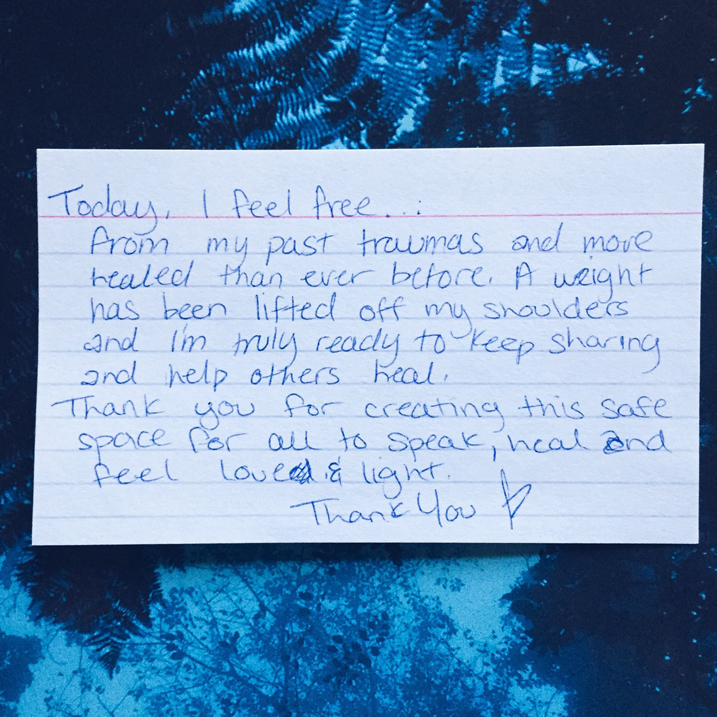 Today, I feel free...:
from my past traumas and more
healed than ever before. A weight
has been lifted off my shoulders
and I'm truly ready to keep sharing
and help others heal.
Thank you for creating this safe
space for all to speak, heal and
feel love & light.
Thank You